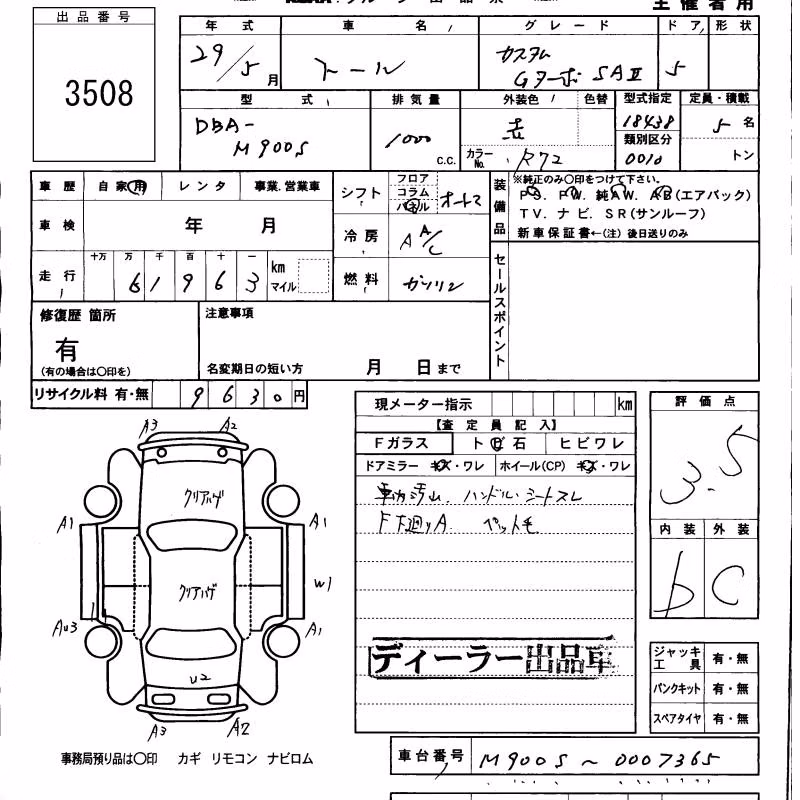 主催者用
出品番号
3508
年式 車名 グレード ドア 形状
29/5月 トール カスタム Gターボ SAⅡ 5
型式 排気量 外装色 色替 型式指定 定員・積載
DBA-M900S 1000 C.C. 赤 18438 5名
カラーNo. R72 類別区分 0010 トン
車歴 自家用 レンタ 事業.営業車
シフト フロア コラム パネル オートマ
装備品 ※純正のみ〇印をつけて下さい。
PS. PW. 純AW. AB(エアバック)
TV. ナビ. SR(サンルーフ)
新車保証書←(注)後日送りのみ
車検 年 月
冷房 A A/C
走行 十万 万 千 百 十 一
6 1 9 6 3 km マイル
燃料 ガソリン
セールスポイント
修復歴 箇所
有
(有の場合は〇印を)
注意事項
名変期日の短い方 月 日まで
リサイクル料 有・無 9 6 3 0 円
現メーター指示 km
【査定員記入】
Fガラス ト ビ 石 ヒビワレ
ドアミラー キズ・ワレ ホイール(CP) キズ・ワレ
車内汚れ. ハンドル・シートスレ
F下廻りA. ペット毛
ディーラー出品車
評価点
3.5
内装 外装
b C
ジャッキ工具 有・無
パンクキット 有・無
スペアタイヤ 有・無
A3 A2
クリアハゲ
A1 A1
クリアハゲ
W1
AU3 A1
U2
A3 A2
事務局預り品は〇印 カギ リモコン ナビロム
車台番号 M900S ~ 0007365